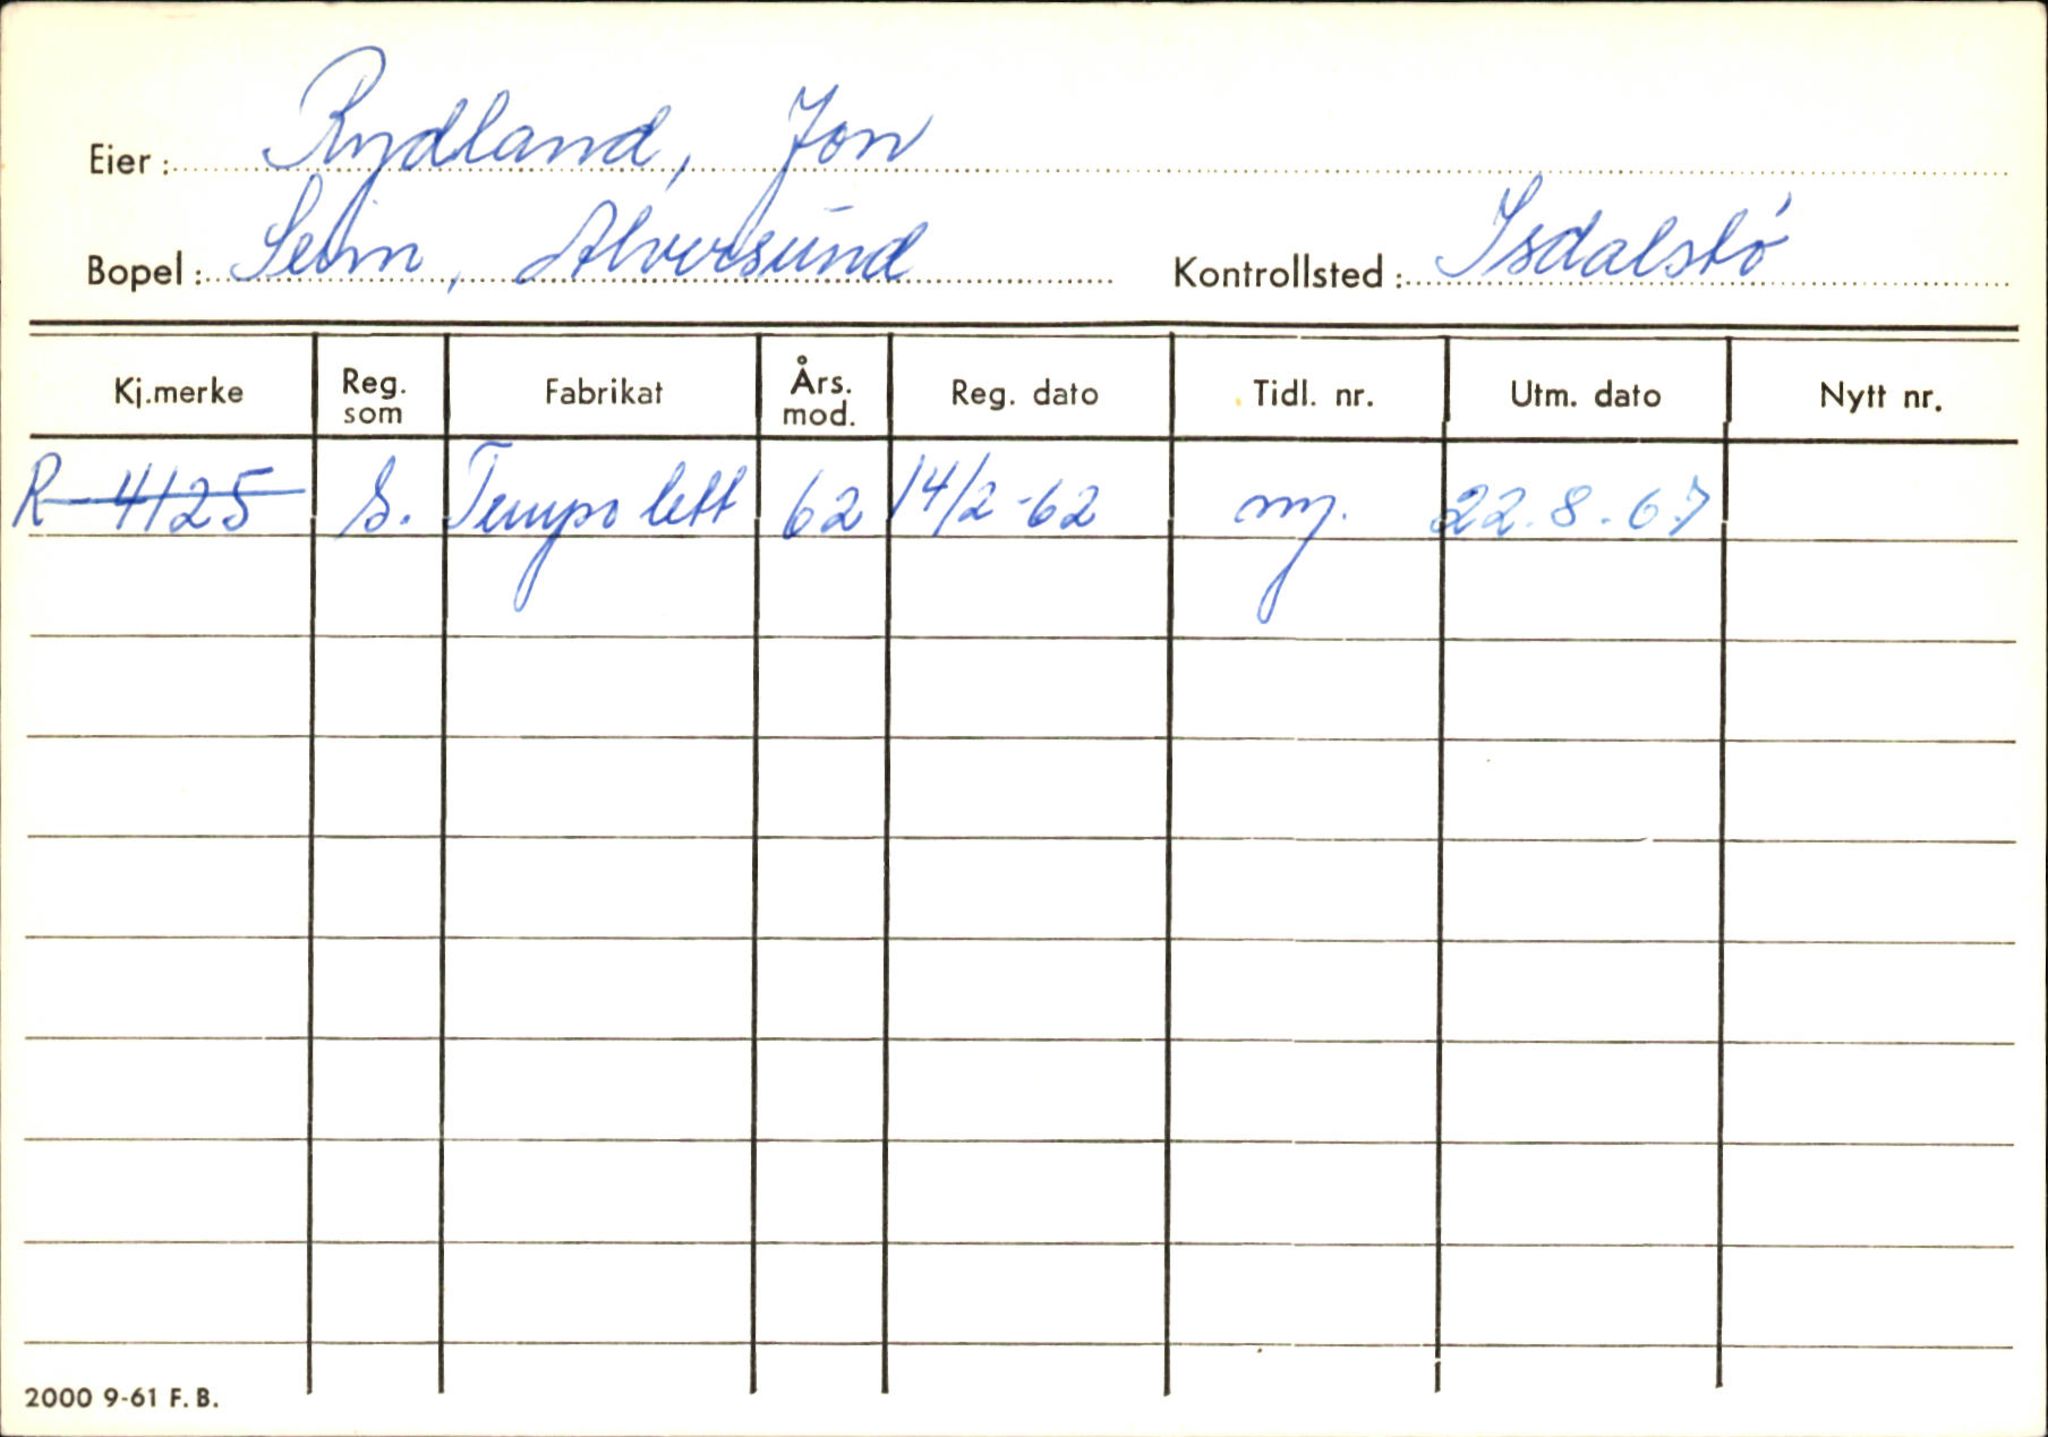 Eier: Rydland, Jon
Bopel: Seim, Alversund Kontrollsted: Isdalstó
Kj.merke Reg. som Fabrikat Års. mod. Reg. dato Tidl. nr. Utm. dato Nytt nr.
R-4125 S. Tempo lett 62 14/2-62 ny. 22.8.67
2000 9-61 F.B.